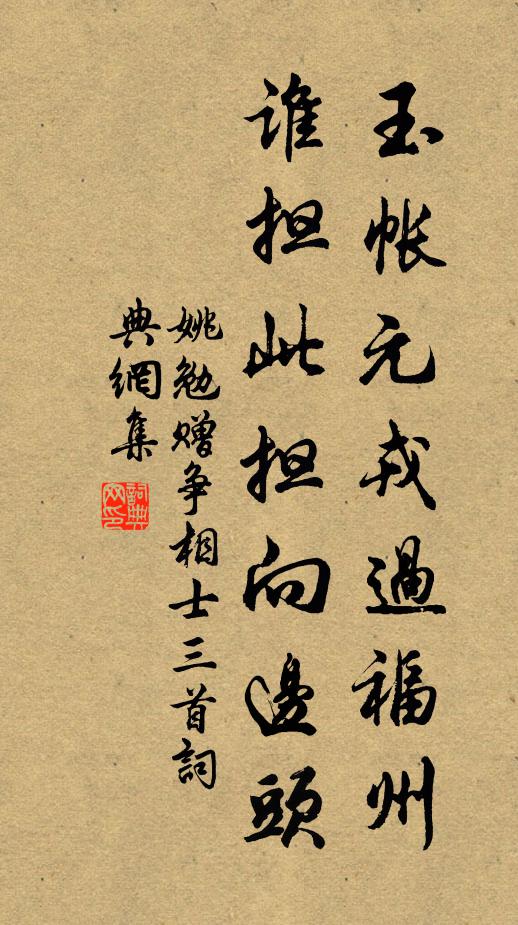 玉帐元戎過福州
谁担此担向邊頭
姚勉赠争相士三首詞
典網集
詞典
网印